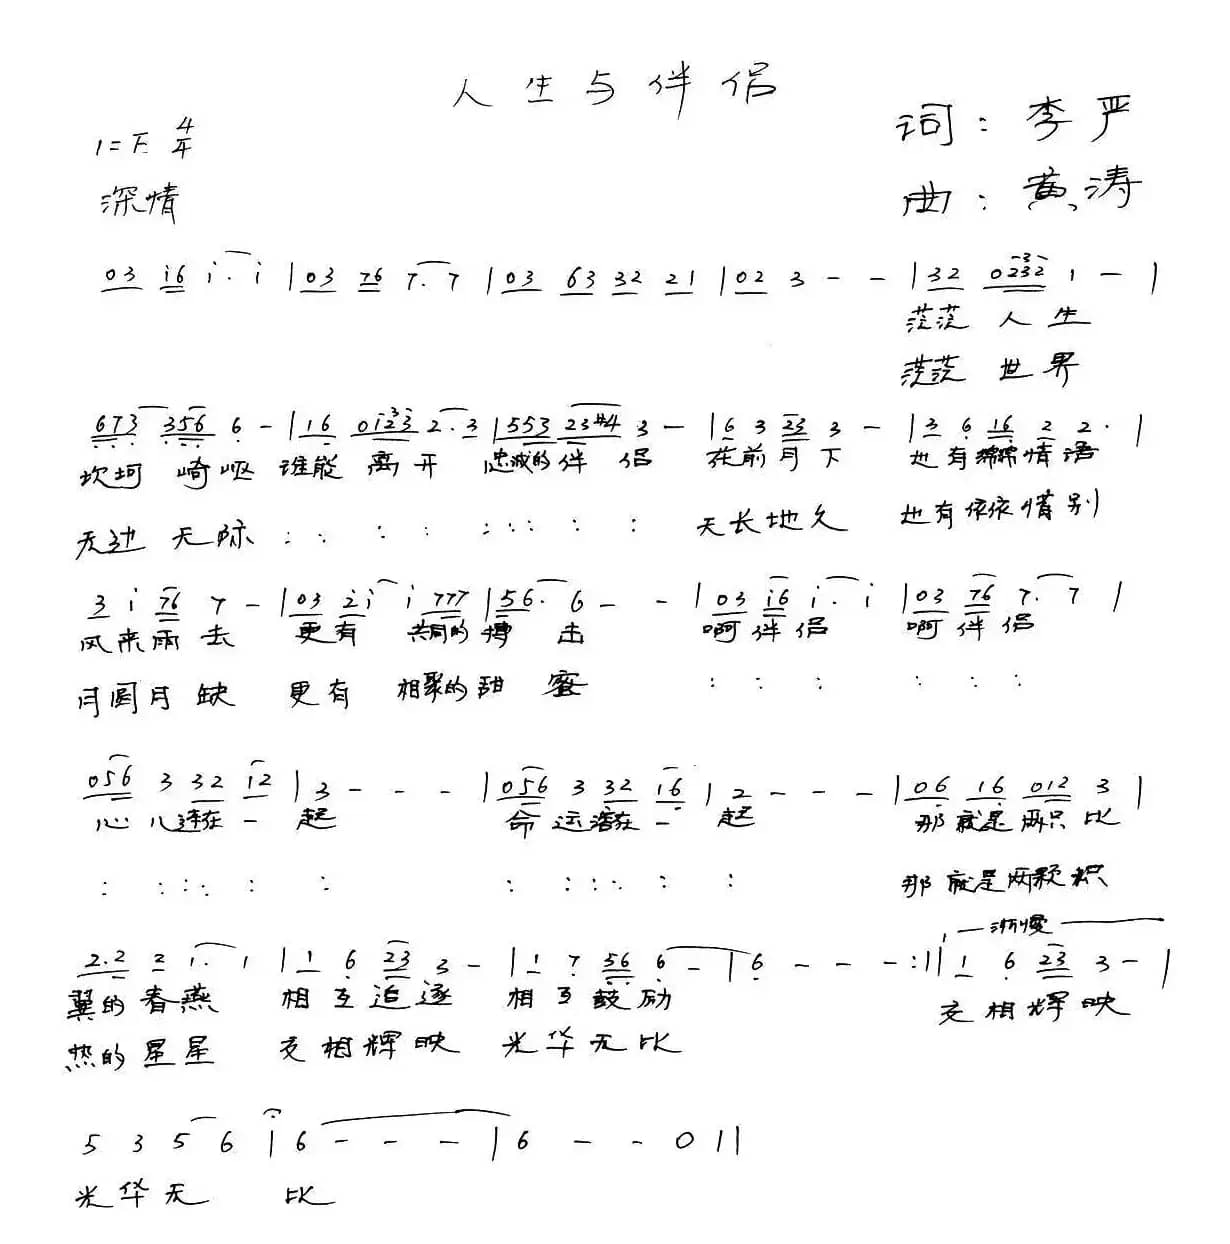 人生与伴侣
词：李严
1=F 4/4
曲：黄涛
深情
03 i6 i. i | 03 76 7. 7 | 03 63 32 21 | 02 3 - - | 32 0232 1 - |
茫茫 人 生
茫茫 世 界
673 356 6 - | 16 0123 2. 3 | 553 23#4 3 - | 6 3 23 3 - | 3 6 16 2 2. |
坎坷 崎岖 谁能 离 开 忠诚的伴 侣 花前月下 也有绵绵情语
无边 无际 : : : : : : : : : 天长地久 也有依依惜别
3 i 76 7 - | 03 2i i 777 | 56. 6 - - | 03 i6 i. i | 03 76 7. 7 |
风来雨去 更有 共同的搏 击 啊伴侣 啊伴侣
月圆月缺 更有 相聚的甜 蜜 : : : : : :
056 3 32 12 | 3 - - - | 056 3 32 16 | 2 - - - | 06 16 012 3 |
心儿连在一 起 命运溶在一 起 那就是两只比
: : : : : : : : : : : : 那就是两颗炽
渐慢
2.2 2 1. 1 | 1 6 23 3 - | 1 7 56 6 - | 6 - - - :|| 1 6 23 3 - |
翼的春燕 相互追逐 相互鼓励 交相辉映
热的星星 交相辉映 光华无比
5 3 5 6 | 6 - - - | 6 - - 0 ||
光华无 比